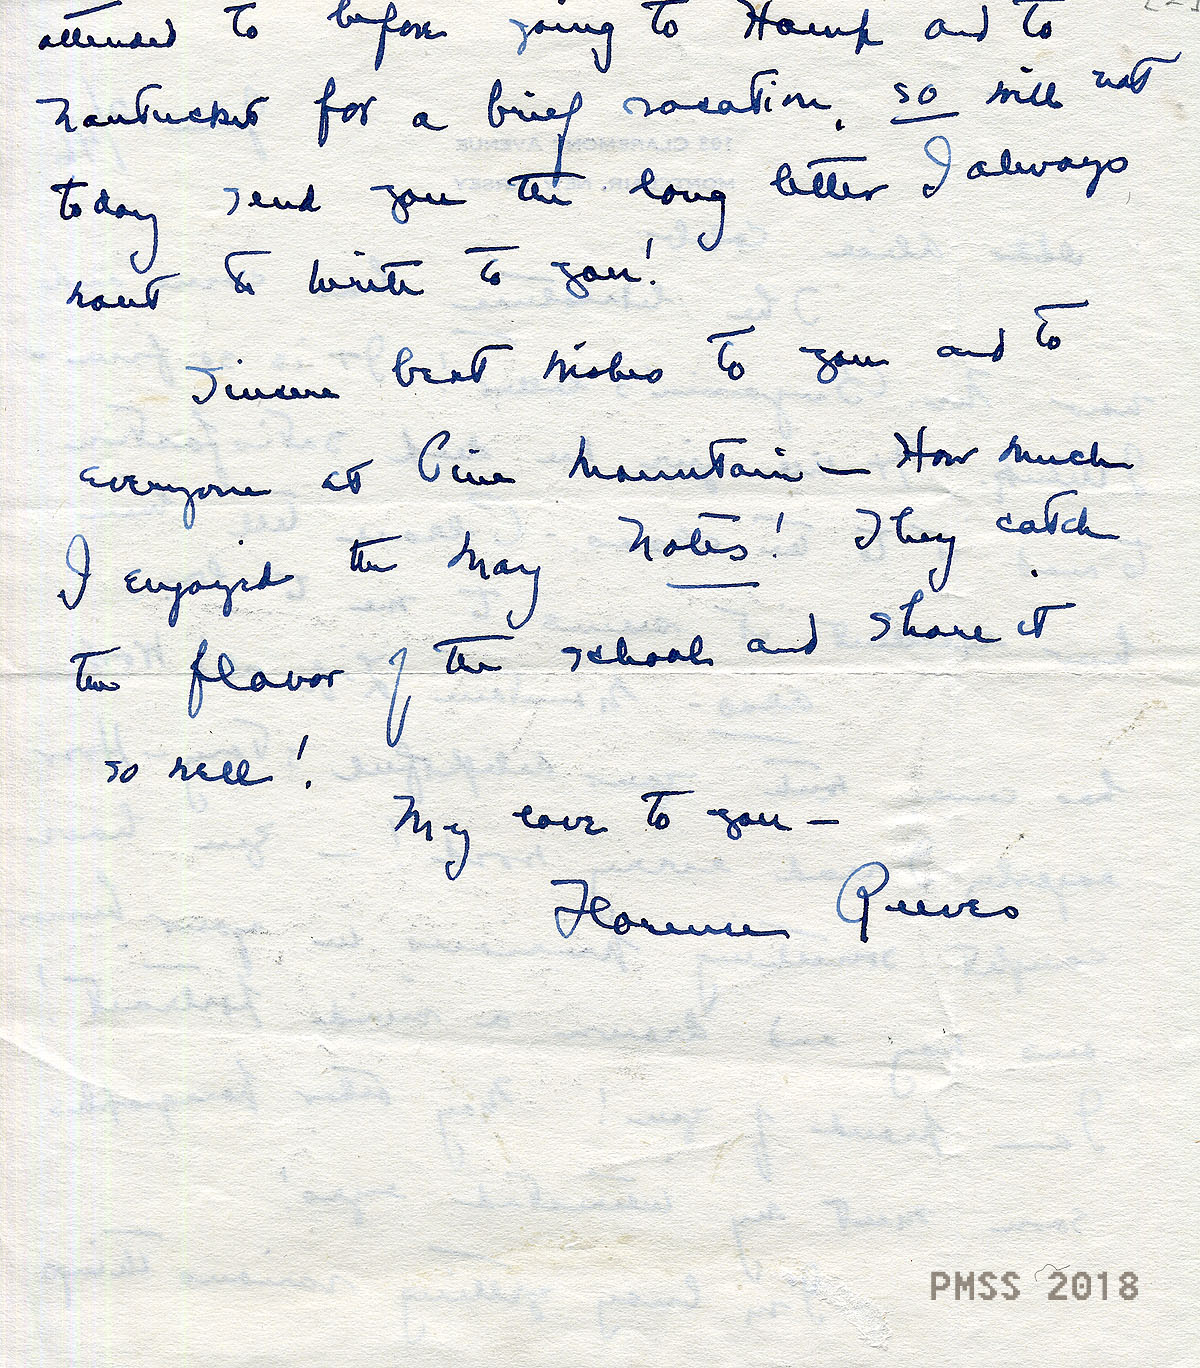 attended to before going to Hemp and to
Nantucket for a brief vacation, so will not
today send you the long letter I always
want to write to you!
Sincere best wishes to you and to
everyone at Pine Mountain — How much
I enjoyed the May Notes! They catch
the flavor of the school and share it
so well!
My love to you —
Florence Reeves
PMSS 2018